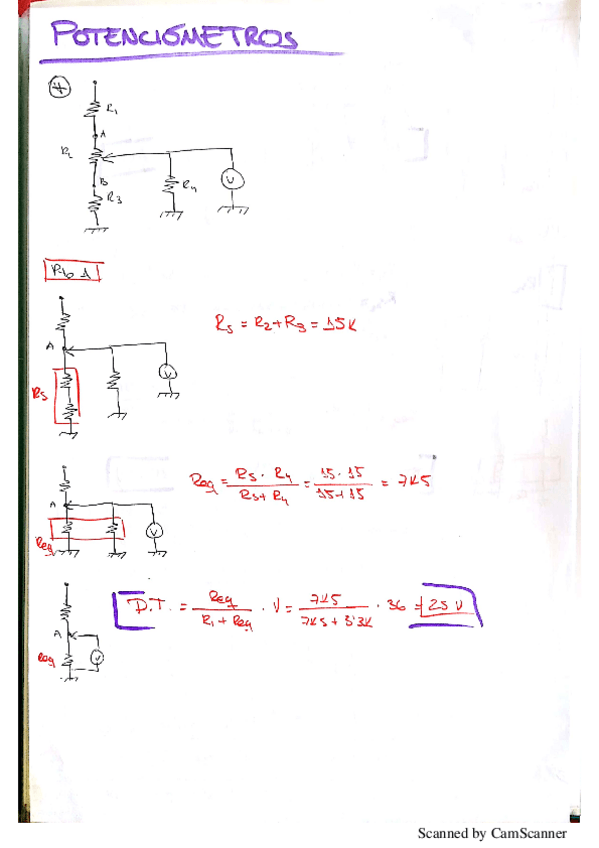 POTENCIÓMETROS
R1
A
R2
B
R3
R4
V
Pto A
R5 = R2 + R3 = 15K
A
V
R5
Req = R5 · R4 / R5 + R4 = 15 · 15 / 15 + 15 = 7K5
A
V
Req
D.T. = Req / R1 + Req · V = 7K5 / 7K5 + 3'3K · 36 = 25 V
A
V
Req
Scanned by CamScanner